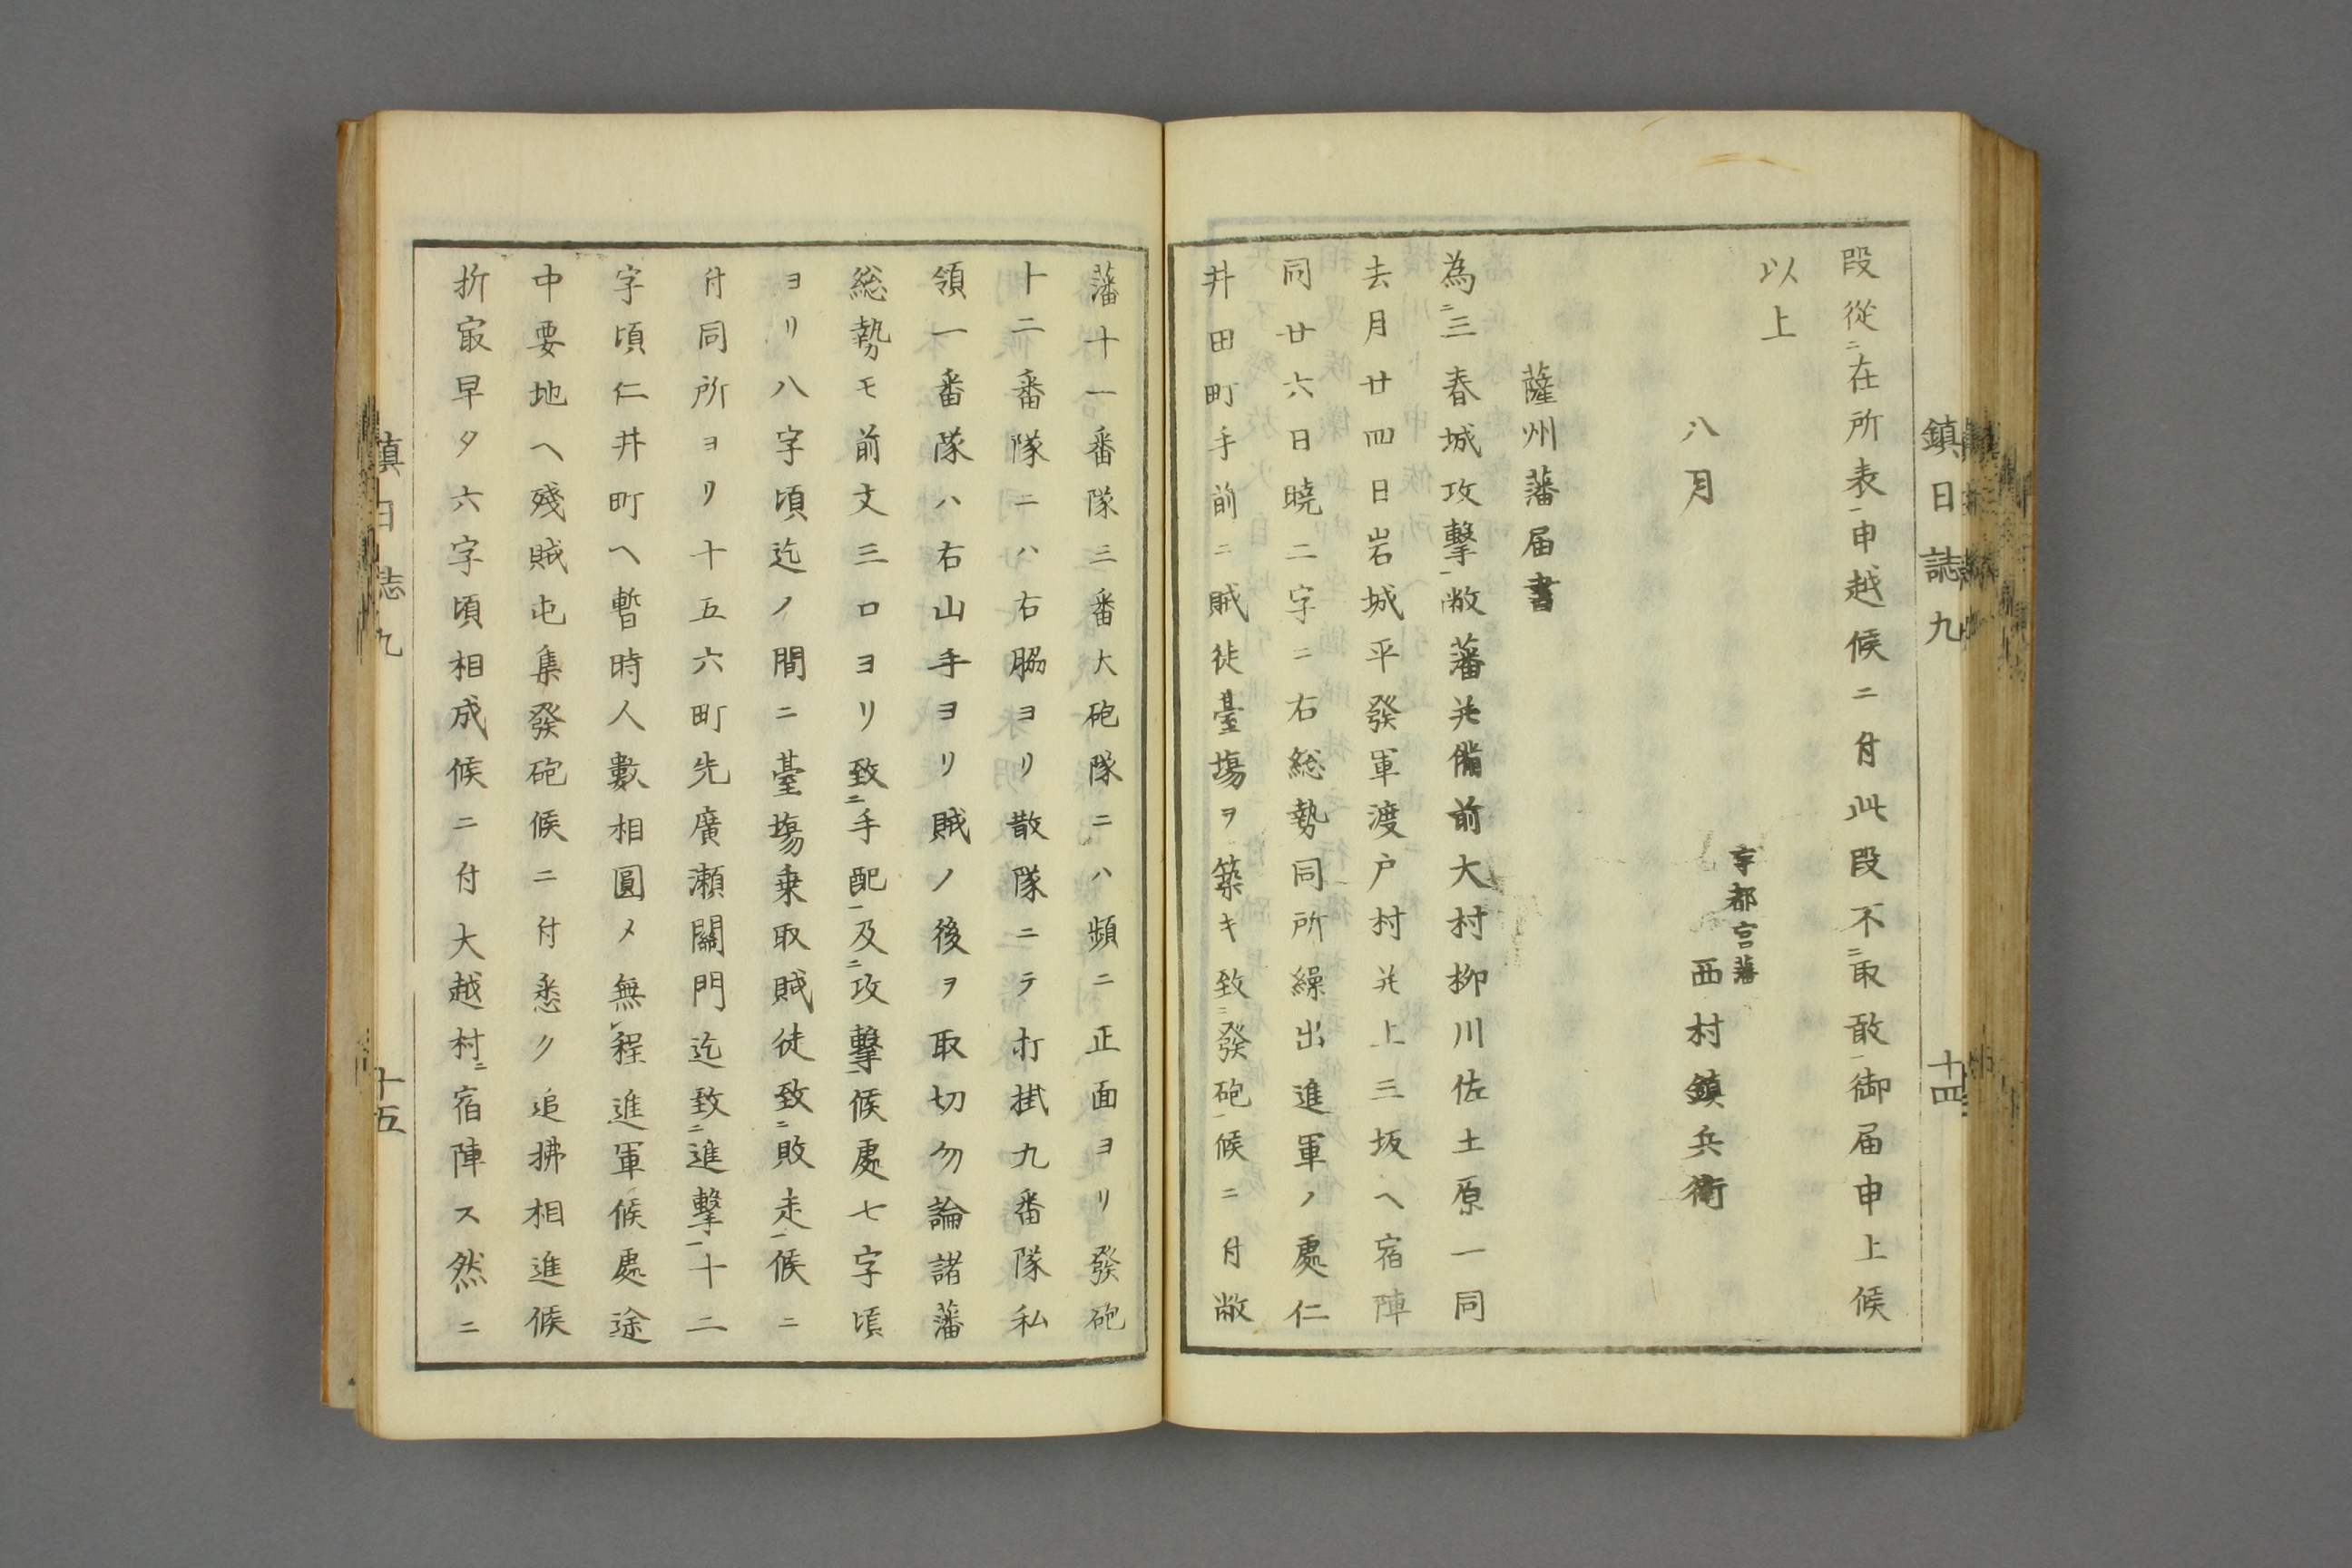 鎮日誌九
十四
段從ニ在所表一申越候ニ付此段不ニ取敢一御届申上候
以上
八月
宇都宮藩
西村鎮兵衛
薩州藩届書
為ニ三春城攻撃一敝藩并備前大村柳川佐土原一同
去月廿四日岩城平發軍渡戸村并上三坂ヘ宿陣
同廿六日曉二字ニ右総勢同所繰出進軍ノ處仁
井田町手前ニ賊徒臺場ヲ築キ致ニ發砲一候ニ付敝
藩十一番隊三番大砲隊ニハ頻ニ正面ヨリ發砲
十二番隊ニハ右脇ヨリ散隊ニテ打掛九番隊私
領一番隊ハ右山手ヨリ賊ノ後ヲ取切勿論諸藩
総勢モ前文三口ヨリ致ニ手配一及ニ攻撃一候處七字頃
ヨリ八字頃迄ノ間ニ臺場乗取賊徒致ニ敗走一候ニ
付同所ヨリ十五六町先廣瀬關門迄致ニ進撃一十二
字頃仁井町ヘ暫時人數相圓メ無レ程進軍候處途
中要地ヘ殘賊屯集發砲候ニ付悉ク追拂相進候
折冣早夕六字頃相成候ニ付大越村ニ宿陣ス然ニ
鎮日誌九
十五